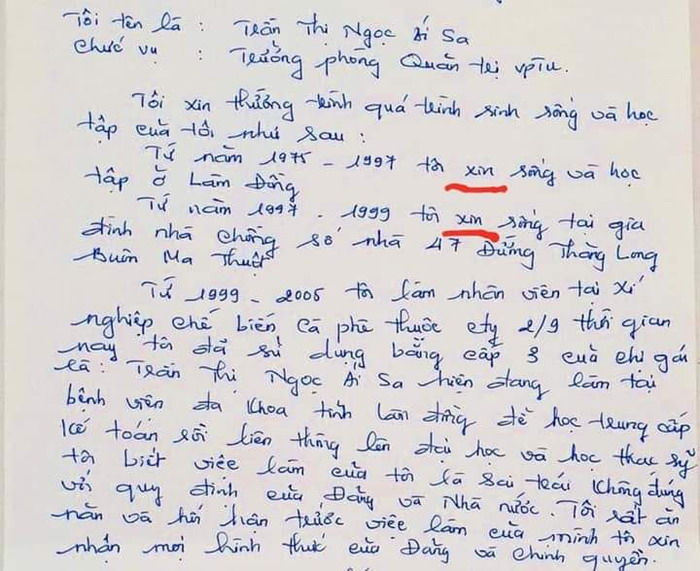 Tôi tên là : Trần Thị Ngọc Ái Sa
Chức vụ : Trưởng phòng Quản trị VPTU.
Tôi xin tường trình quá trình sinh sống và học
tập của tôi như sau :
Từ năm 1975 - 1997 tôi xin sống và học
tập ở Lâm Đồng
Từ năm 1997 - 1999 tôi xin sống tại gia
đình nhà chồng số nhà 47 Đường Thăng Long
Buôn Ma Thuột
Từ 1999 - 2005 tôi làm nhân viên tại Xí
nghiệp chế biến cà phê thuộc cty 2/9 thời gian
này tôi đã sử dụng bằng cấp 3 của chị gái
là : Trần Thị Ngọc Ái Sa hiện đang làm tại
bệnh viên đa khoa tỉnh Lâm đồng để học trung cấp
kế toán rồi liên thông lên đại học và học thạc sỹ
tôi biết việc làm của tôi là sai trái không đúng
với quy định của Đảng và Nhà nước. Tôi rất ăn
năn và hối hận trước việc làm của mình tôi xin
nhận mọi hình thức của Đảng và chính quyền.